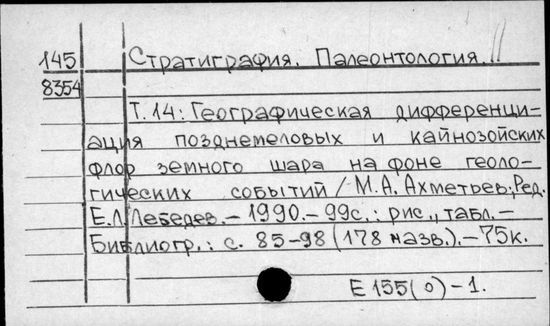 145 Стратиграфия. Палеонтология.
8354
Т.14: Географическая дифференци-
ация позднемеловых и кайнозойских
флор земного шара на фоне геоло-
гических событий / М.А. Ахметьев; Ред.
Е.Л. Лебедев. – 1990. – 99с.: рис., табл. –
Библиогр.: с. 85–98 (178 назв.). – 75к.
Е 155(0)–1.